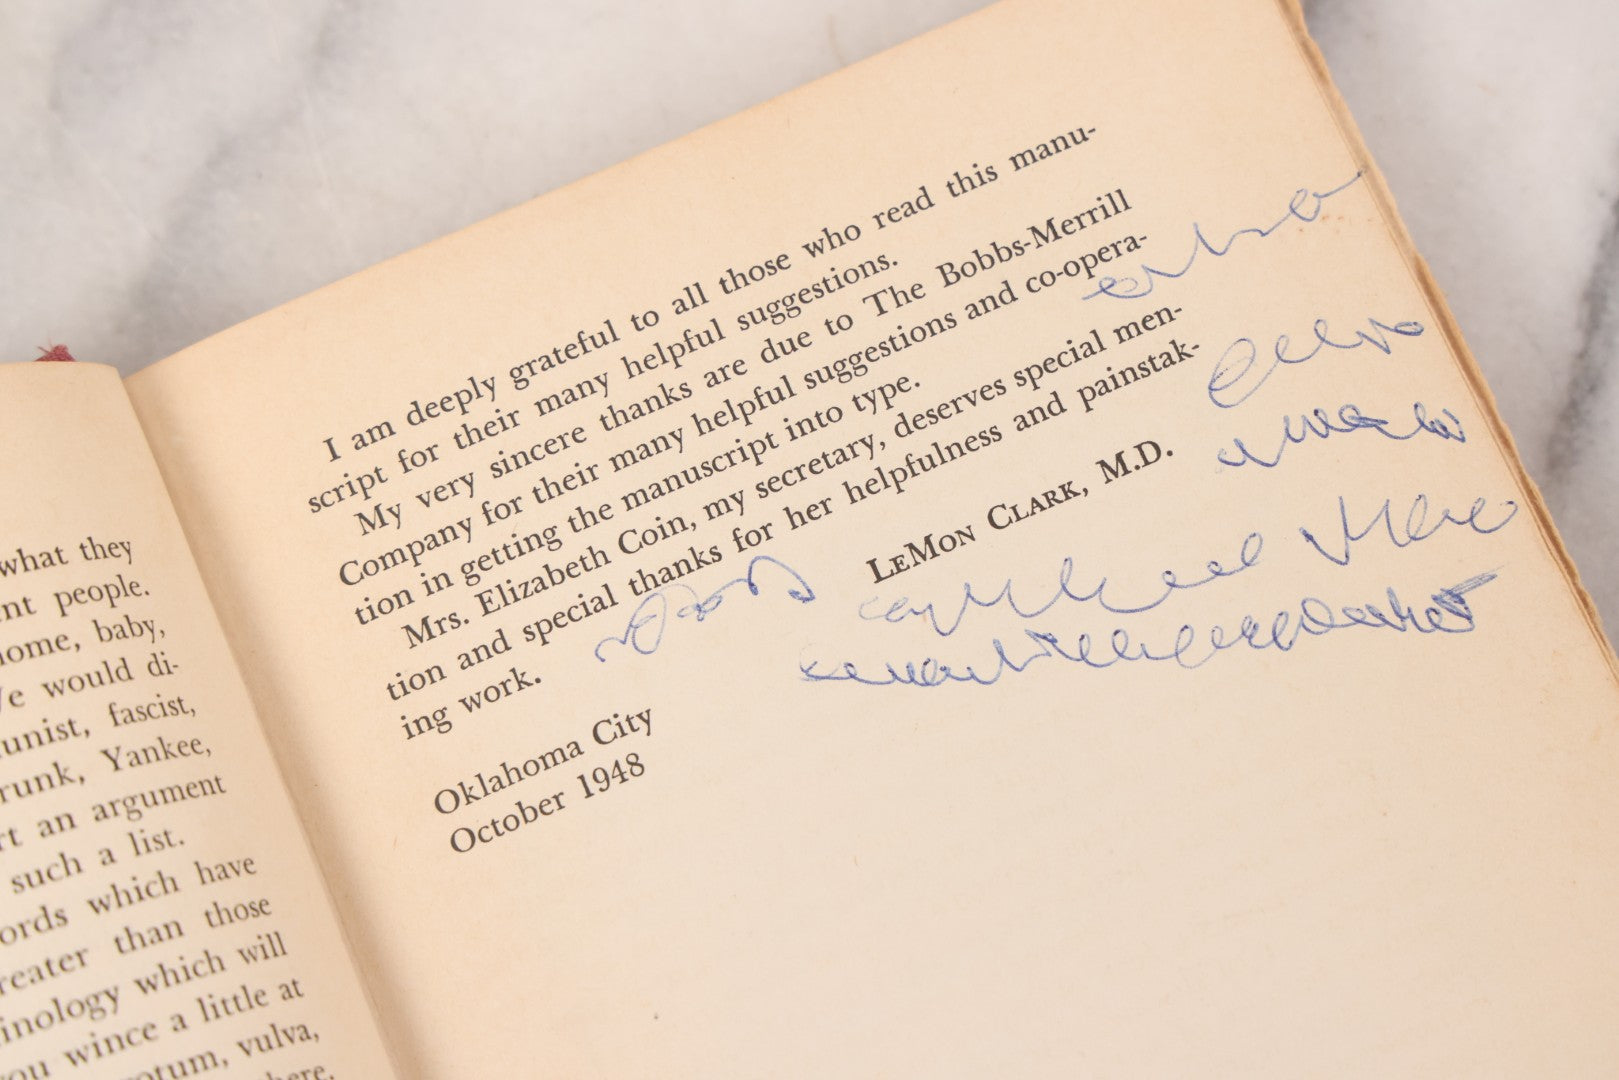 what they
nt people.
ome, baby,
e would di-
unist, fascist,
runk, Yankee,
rt an argument
such a list.
ords which have
reater than those
inology which will
ou wince a little at
otum, vulva,
here.
I am deeply grateful to all those who read this manu-
script for their many helpful suggestions.
My very sincere thanks are due to The Bobbs-Merrill
Company for their many helpful suggestions and co-opera-
tion in getting the manuscript into type.
Mrs. Elizabeth Coin, my secretary, deserves special men-
tion and special thanks for her helpfulness and painstak-
ing work.
LEMON CLARK, M.D.
Oklahoma City
October 1948